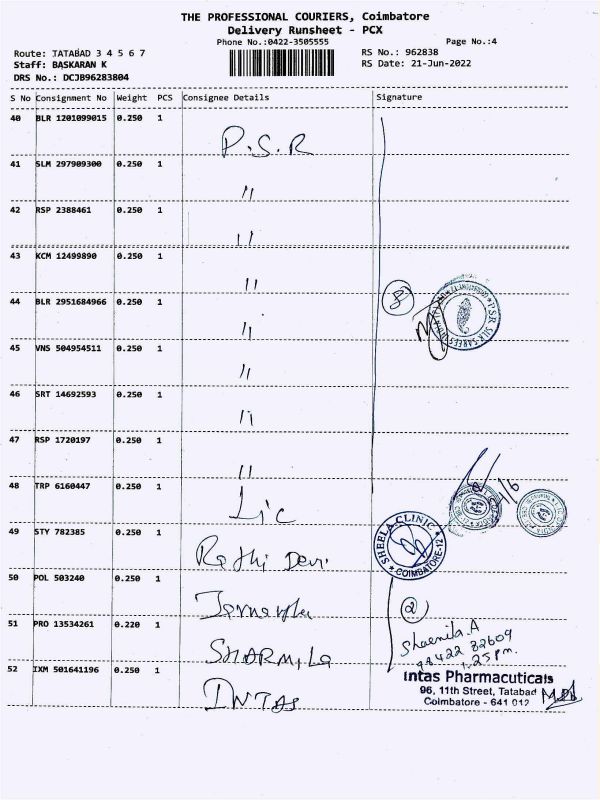 THE PROFESSIONAL COURIERS, Coimbatore
Delivery Runsheet - PCX
Phone No.:0422-3505555
Page No.:4
Route: TATABAD 3 4 5 6 7
RS No.: 962838
Staff: BASKARAN K
RS Date: 21-Jun-2022
DRS No.: DCJB96283804
S No Consignment No Weight PCS Consignee Details Signature
40 BLR 1201099015 0.250 1 P.S.R
41 SLM 297909300 0.250 1 "
42 RSP 2388461 0.250 1 "
43 KCM 12499890 0.250 1 "
44 BLR 2951684966 0.250 1 " 8
45 VNS 504954511 0.250 1 "
46 SRT 14692593 0.250 1 "
47 RSP 1720197 0.250 1 "
48 TRP 6160447 0.250 1 Lic
49 STY 782385 0.250 1 Rethi Devi
SHEELA CLINIC
COIMBATORE-12
50 POL 503240 0.250 1
2
51 PRO 13534261 0.220 1 SHARMILA
Shaemila.A
98422 82609
1.25pm.
52 IXM 501641196 0.250 1 INTAS
Intas Pharmaceuticals
96, 11th Street, Tatabad
Coimbatore - 641 012